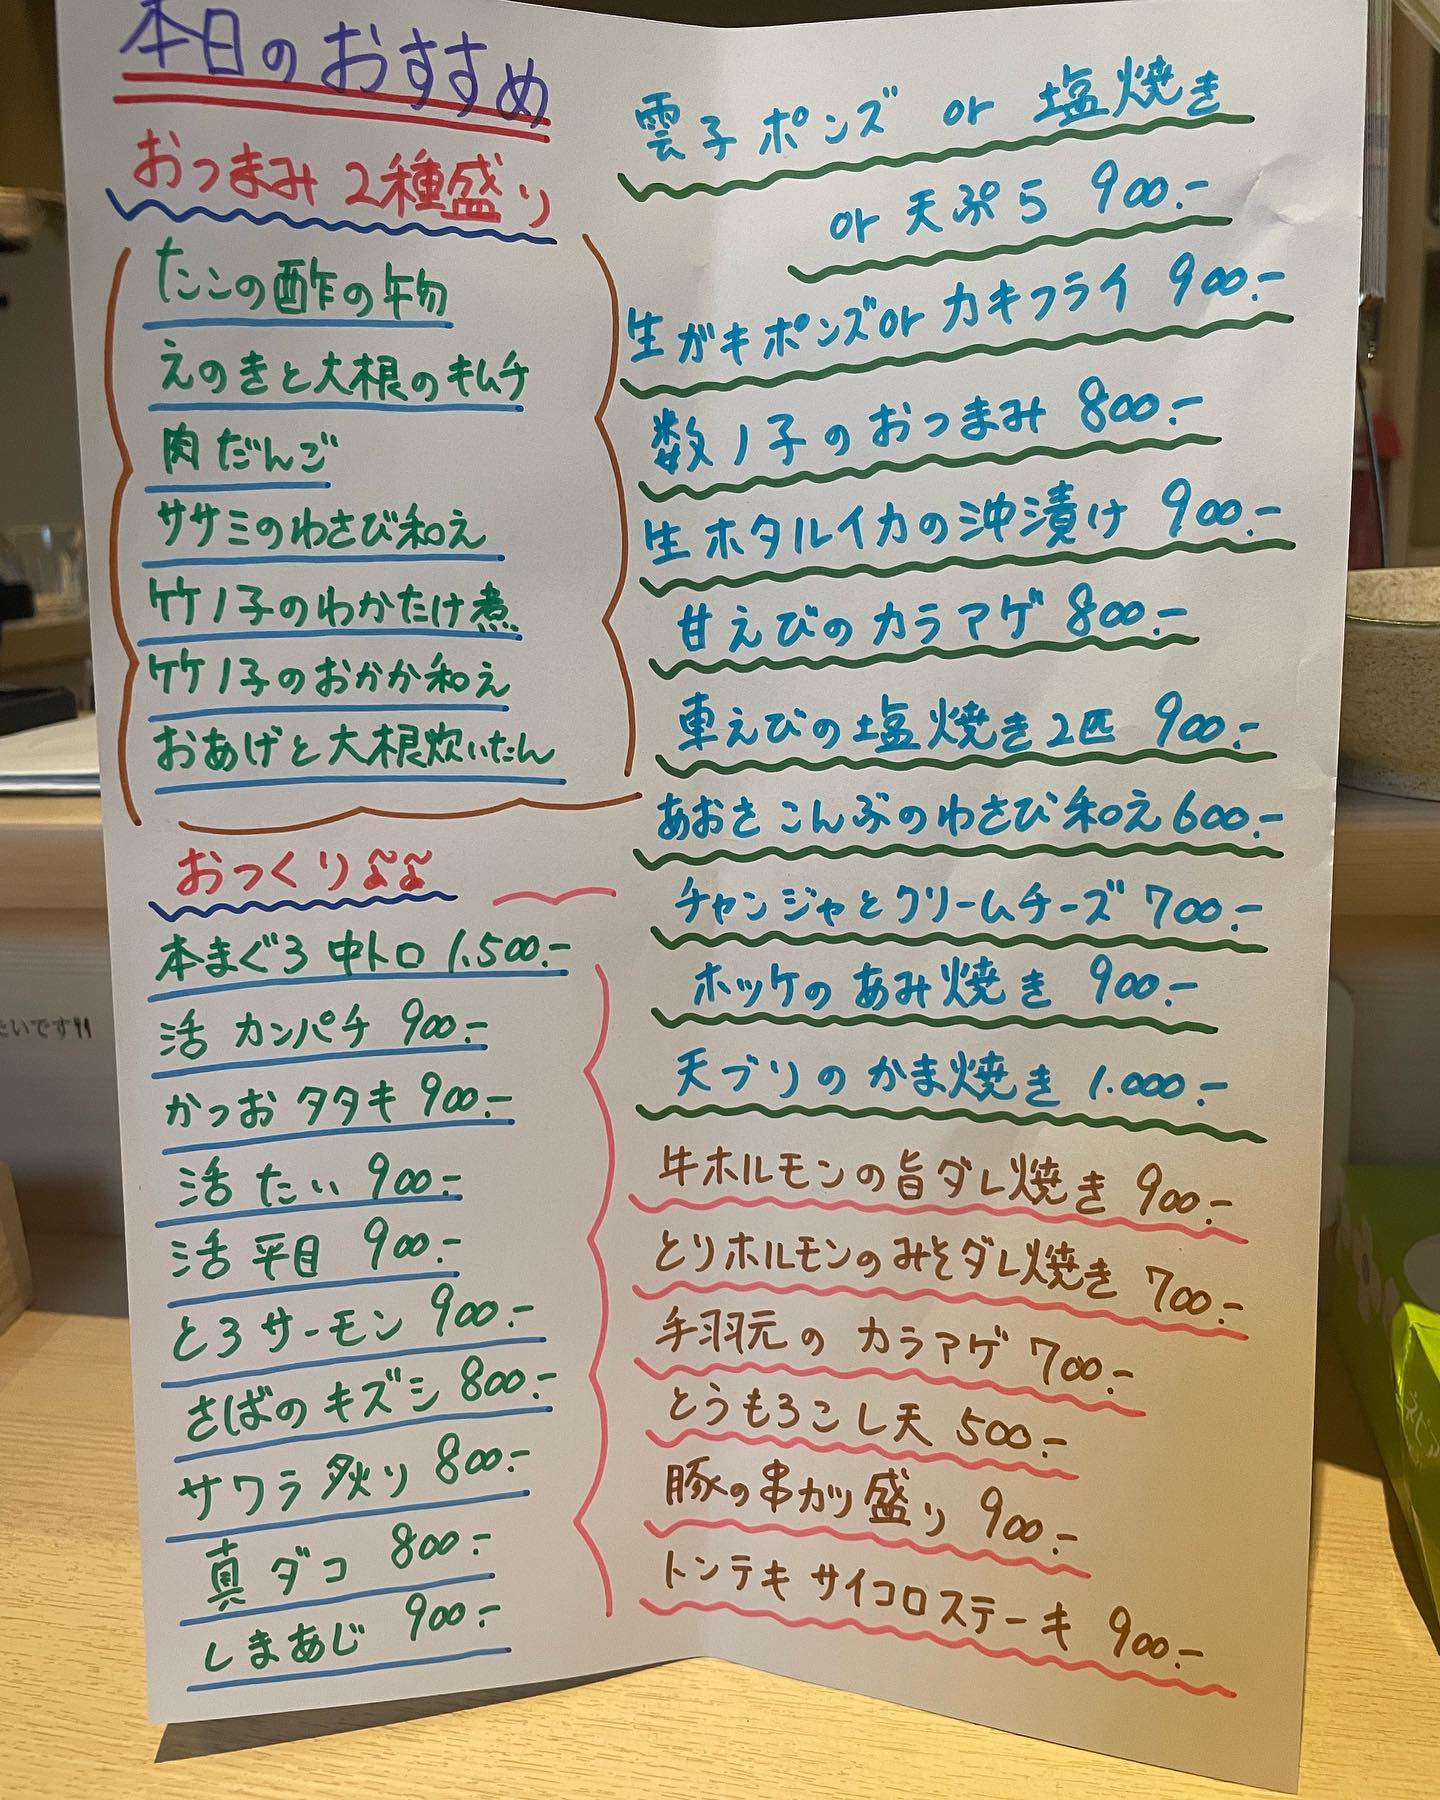 本日のおすすめ
おつまみ 2種盛り
たこの酢の物
えのきと大根のキムチ
肉だんご
ササミのわさび和え
竹ノ子のわかたけ煮
竹ノ子のおかか和え
おあげと大根炊いたん
おつくり
本まぐろ 中トロ 1.500.-
活 カンパチ 900.-
かつお タタキ 900.-
活 たい 900.-
活 平目 900.-
とろサーモン 900.-
さばのキズシ 800.-
サワラ炙り 800.-
真ダコ 800.-
しまあじ 900.-
雲子ポンズ or 塩焼き
or 天ぷら 900.-
生ガキポンズor カキフライ 900.-
数ノ子のおつまみ 800.-
生ホタルイカの沖漬け 900.-
甘えびのカラアゲ 800.-
車えびの塩焼き2匹 900.-
あおさこんぶのわさび和え 600.-
チャンジャとクリームチーズ 700.-
ホッケのあみ焼き 900.-
天ブリのかま焼き 1.000.-
牛ホルモンの旨ダレ焼き 900.-
とりホルモンのみそダレ焼き 700.-
手羽元のカラアゲ 700.-
とうもろこし天 500.-
豚の串カツ盛り 900.-
トンテキサイコロステーキ 900.-
たいです